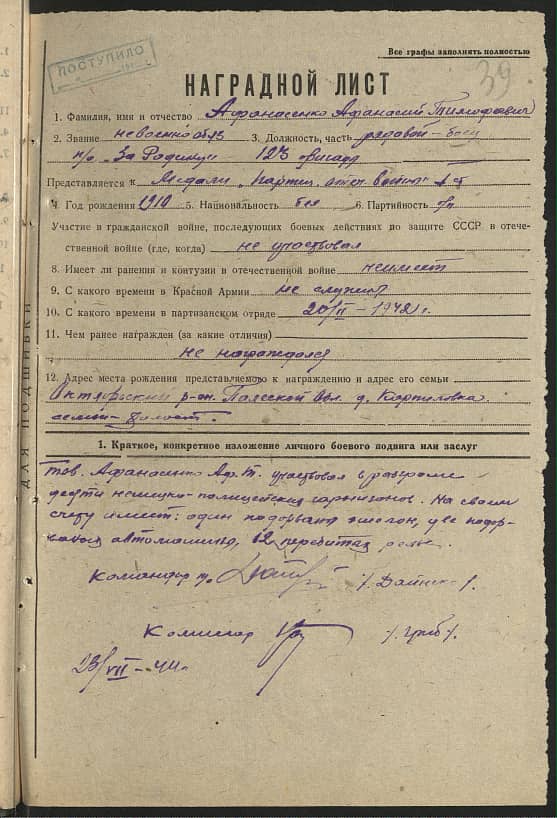 Все графы заполнять полностью
ПОСТУПИЛО
39.
НАГРАДНОЙ ЛИСТ
1. Фамилия, имя и отчество Афанасенко Афанасий Тимофеевич
2. Звание невоеннообяз 3. Должность, часть рядовой-боец
п/о "За Родину" 123 бригады
Представляется к Медали "Партиз. отеч. войны" I ст
4. Год рождения 1910 5. Национальность бел 6. Партийность б/п
Участие в гражданской войне, последующих боевых действиях по защите СССР в отече-
ственной войне (где, когда) не участвовал
8. Имеет ли ранения и контузии в отечественной войне неимеет
9. С какого времени в Красной Армии не служил
10. С какого времени в партизанском отряде 20/II - 1942 г.
11. Чем ранее награжден (за какие отличия)
не награждался
12. Адрес места рождения представляемого к награждению и адрес его семьи
Октябрьский р-он. Полесской обл. д. Карпиловка.
семья
ДЛЯ ПОДШИВКИ
1. Краткое, конкретное изложение личного боевого подвига или заслуг
Тов. Афанасенко Аф. Т. участвовал в разгроме
девяти немецко-полицейских гарнизонов. На своем
счету имеет: один подорван эшелон, две подор-
ваных автомашины, 12 перебитых рельс.
Командир п/о / Дайнеко /.
Комиссар / Гриб /.
23/VII - 44 г.